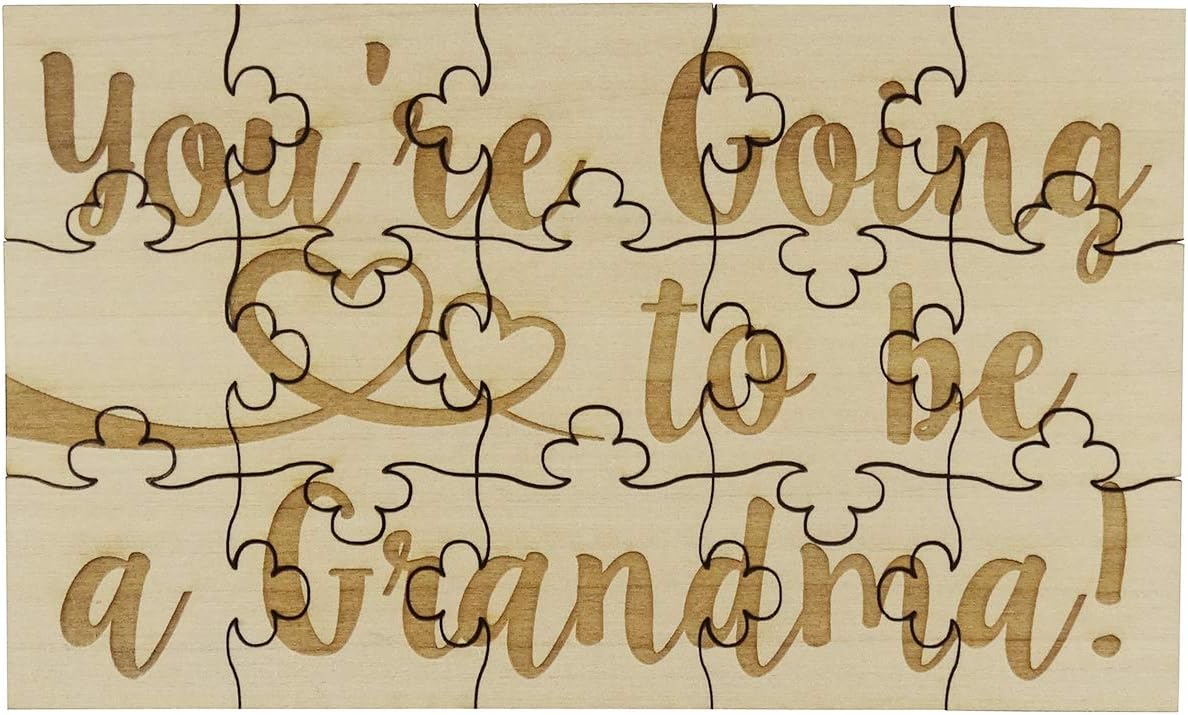 You're Going
to be
a Grandma!